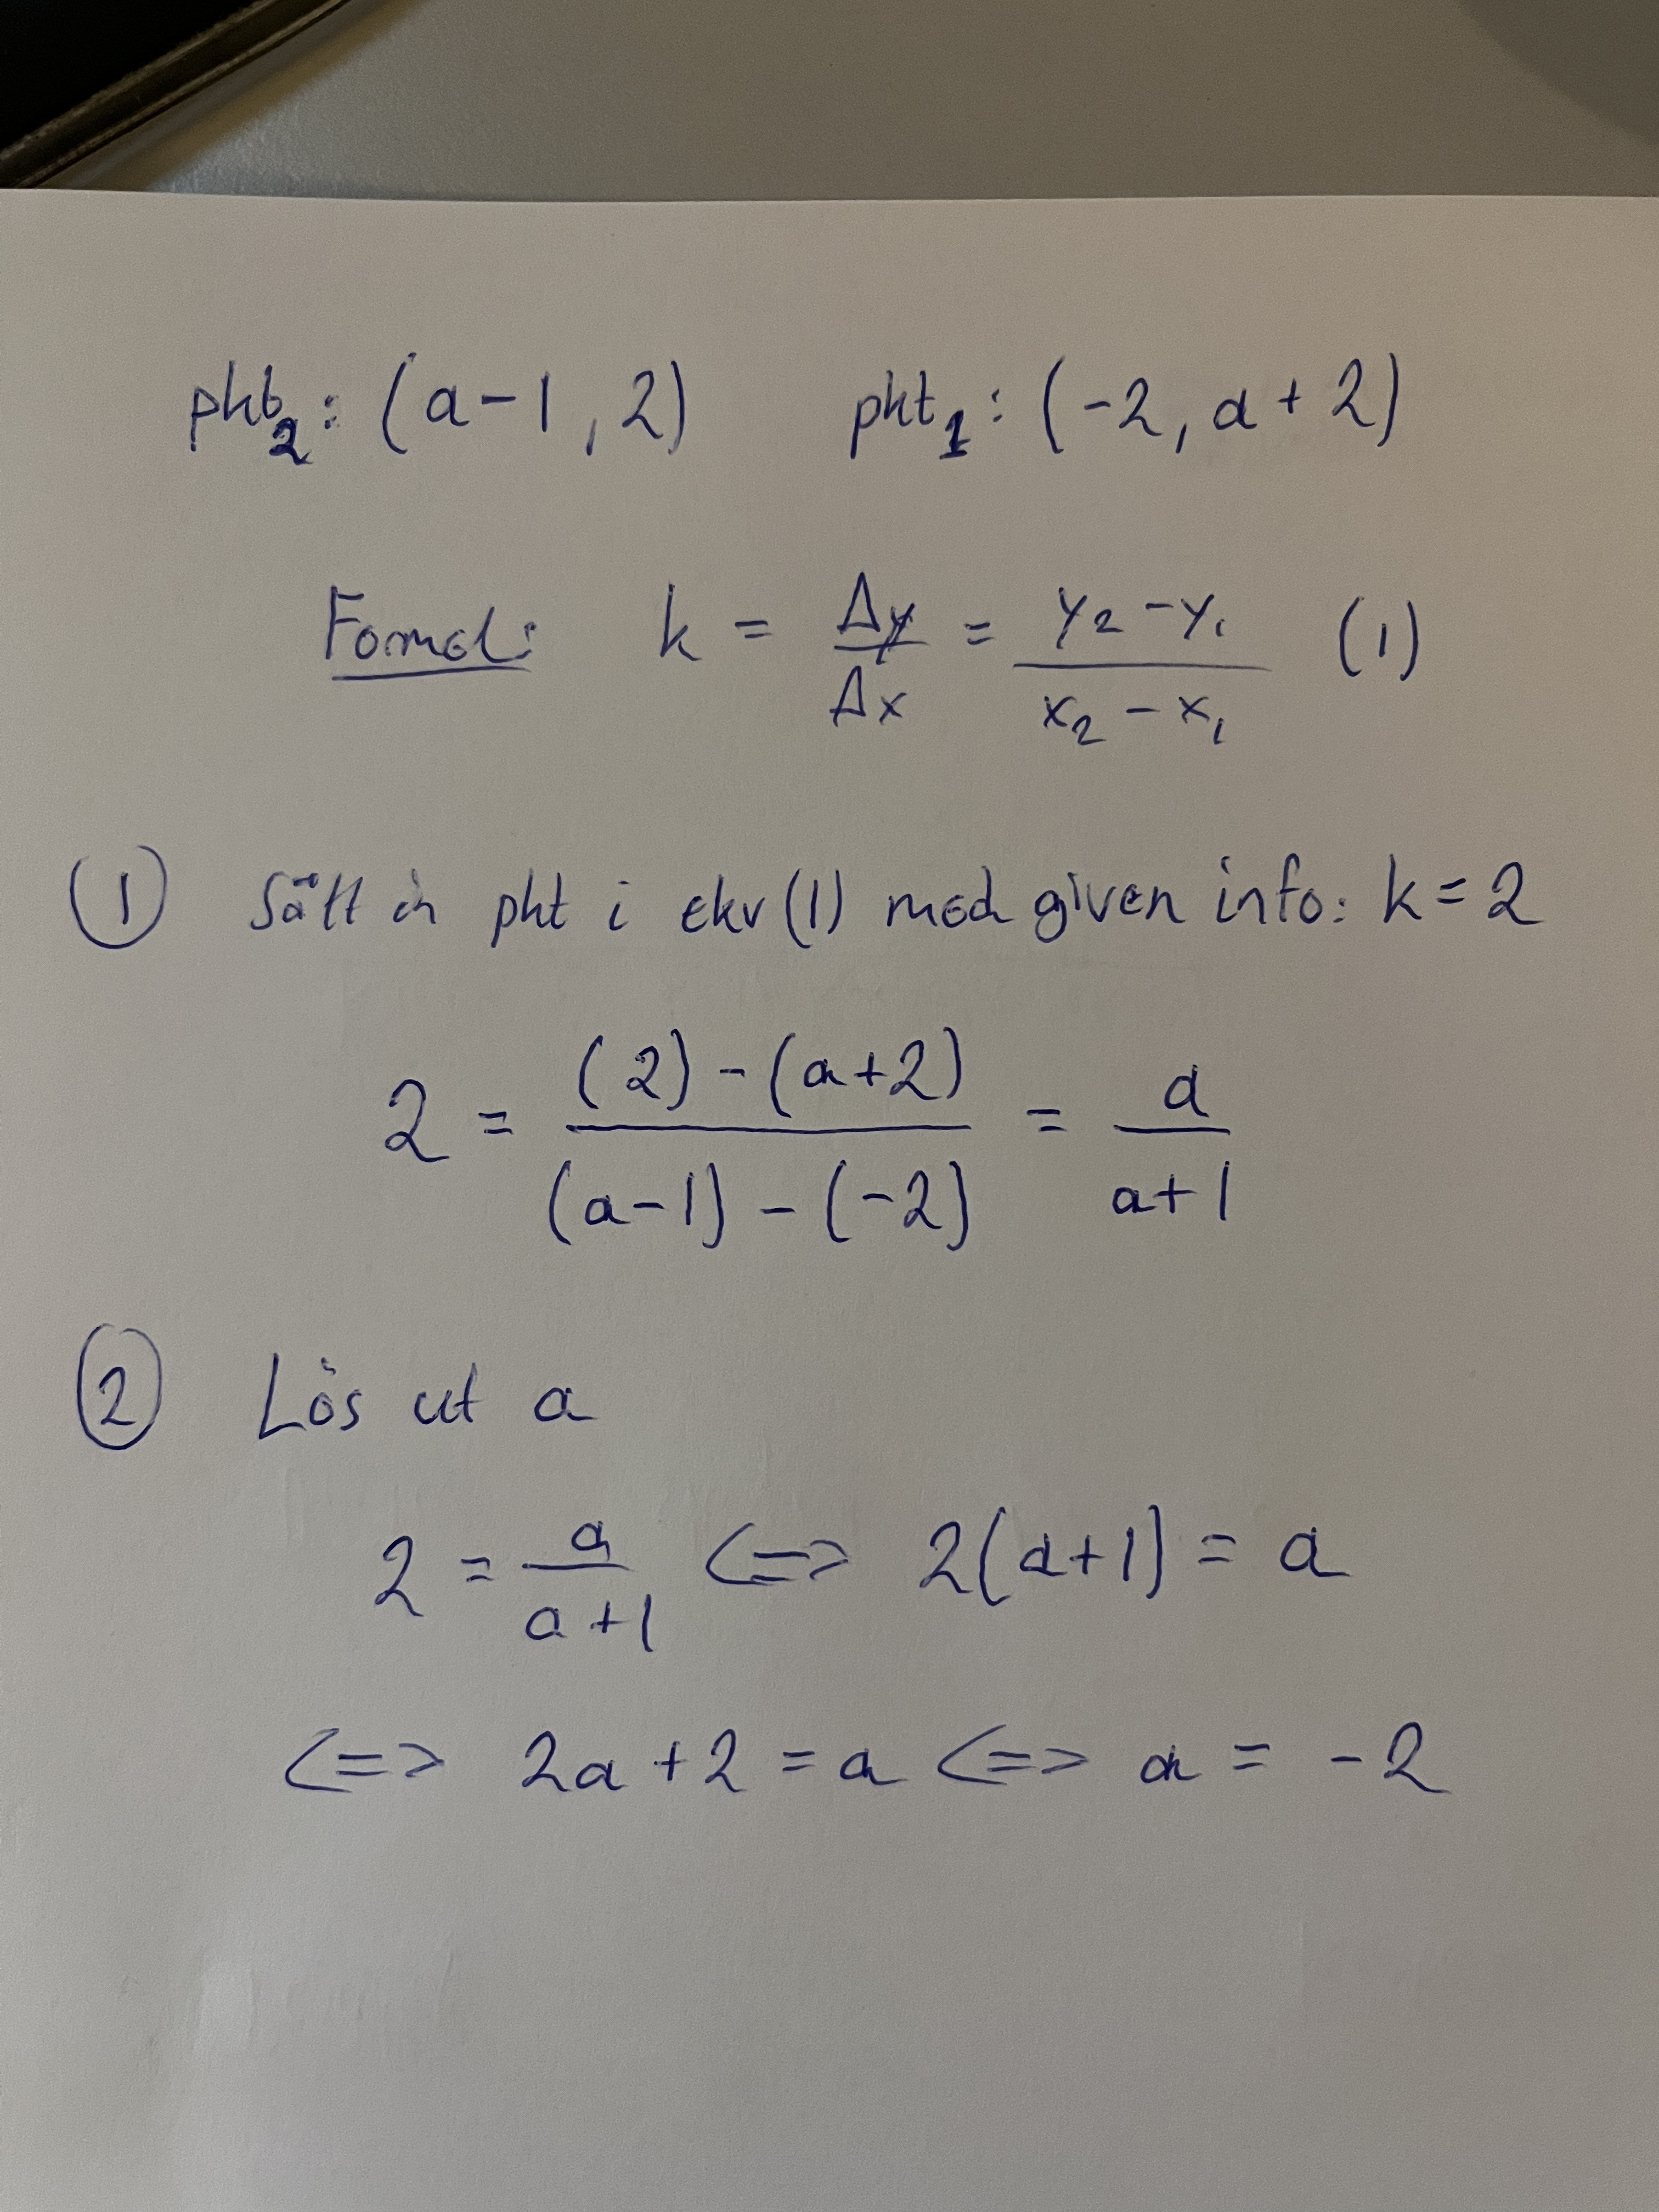 pkt₂: (a-1, 2) pkt₁: (-2, a+2)
Formel: k = Δy/Δx = (y₂-y₁)/(x₂-x₁) (1)
① Sätt in pkt i ekv(1) med given info: k=2
2 = ((2)-(a+2))/((a-1)-(-2)) = a/(a+1)
② Lös ut a
2 = a/(a+1) <=> 2(a+1) = a
<=> 2a+2 = a <=> a = -2